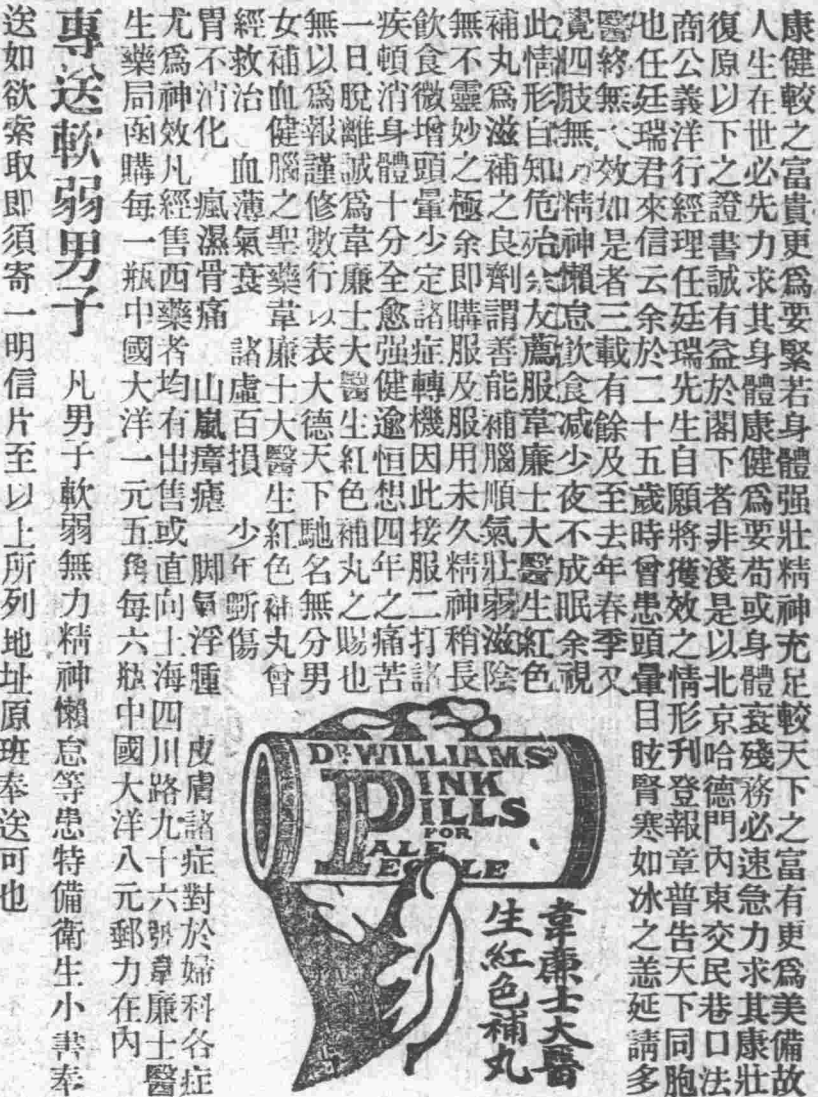 康健較之富貴更爲要緊若身體强壯精神充足較天下之富有更爲美備故
人生在世必先力求其身體康健爲要苟或身體衰殘務必速急力求其康壯
復原以下之證書誠有益於閣下者非淺是以北京哈德門內東交民巷口法
商公義洋行經理任廷瑞先生自願將獲效之情形刊登報章普告天下同胞
也任廷瑞君來信云余於二十五歲時曾患頭暈目眩腎寒如冰之恙延請多
醫終無大效如是者三載有餘及至去年春季又
覺四肢無力精神懶怠飲食減少夜不成眠余視
此情形自知危殆余友薦服韋廉士大醫生紅色
補丸爲滋補之良劑謂善能補腦順氣壯弱滋陰
無不靈妙之極余即購服及服用未久精神稍長
飲食微增頭暈少定諸症轉機因此接服二打諸
疾頓消身體十分全愈强健逾恒想四年之痛苦
一日脫離誠爲韋廉士大醫生紅色補丸之賜也
無以爲報謹修數行以表大德天下馳名無分男
女補血健腦之聖藥韋廉士大醫生紅色補丸曾
經救治 血薄氣衰 諸虛百損 少年斲傷
胃不消化 瘋濕骨痛 山嵐瘴瘧 脚氣浮腫 皮膚諸症對於婦科各症
尤爲神效凡經售西藥者均有出售或直向上海四川路九十六號韋廉士醫
生藥局函購每一瓶中國大洋一元五角每六瓶中國大洋八元郵力在內
專送軟弱男子 凡男子軟弱無力精神懶怠等患特備衛生小書奉
送如欲索取即須寄一明信片至以上所列地址原班奉送可也
DR. WILLIAMS'
PINK
PILLS
FOR
PALE
PEOPLE
韋廉士大醫
生紅色補丸